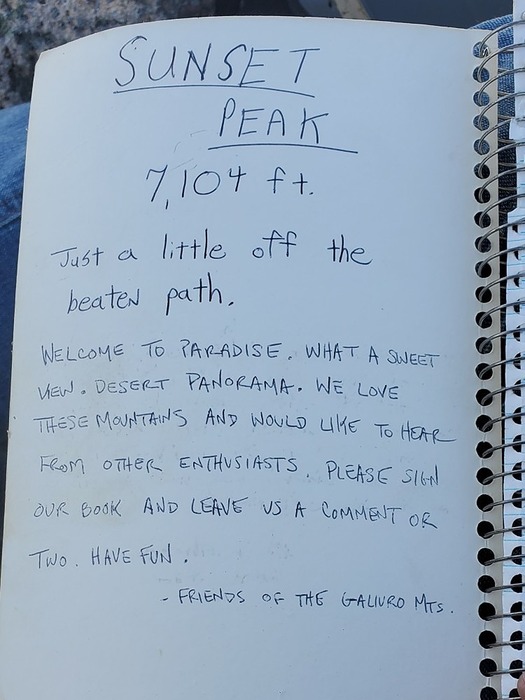 SUNSET
PEAK
7,104 ft.
Just a little off the
beaten path.
WELCOME TO PARADISE. WHAT A SWEET
VIEW. DESERT PANORAMA. WE LOVE
THESE MOUNTAINS AND WOULD LIKE TO HEAR
FROM OTHER ENTHUSIASTS. PLEASE SIGN
OUR BOOK AND LEAVE US A COMMENT OR
TWO. HAVE FUN.
- FRIENDS OF THE GALIURO MTS.